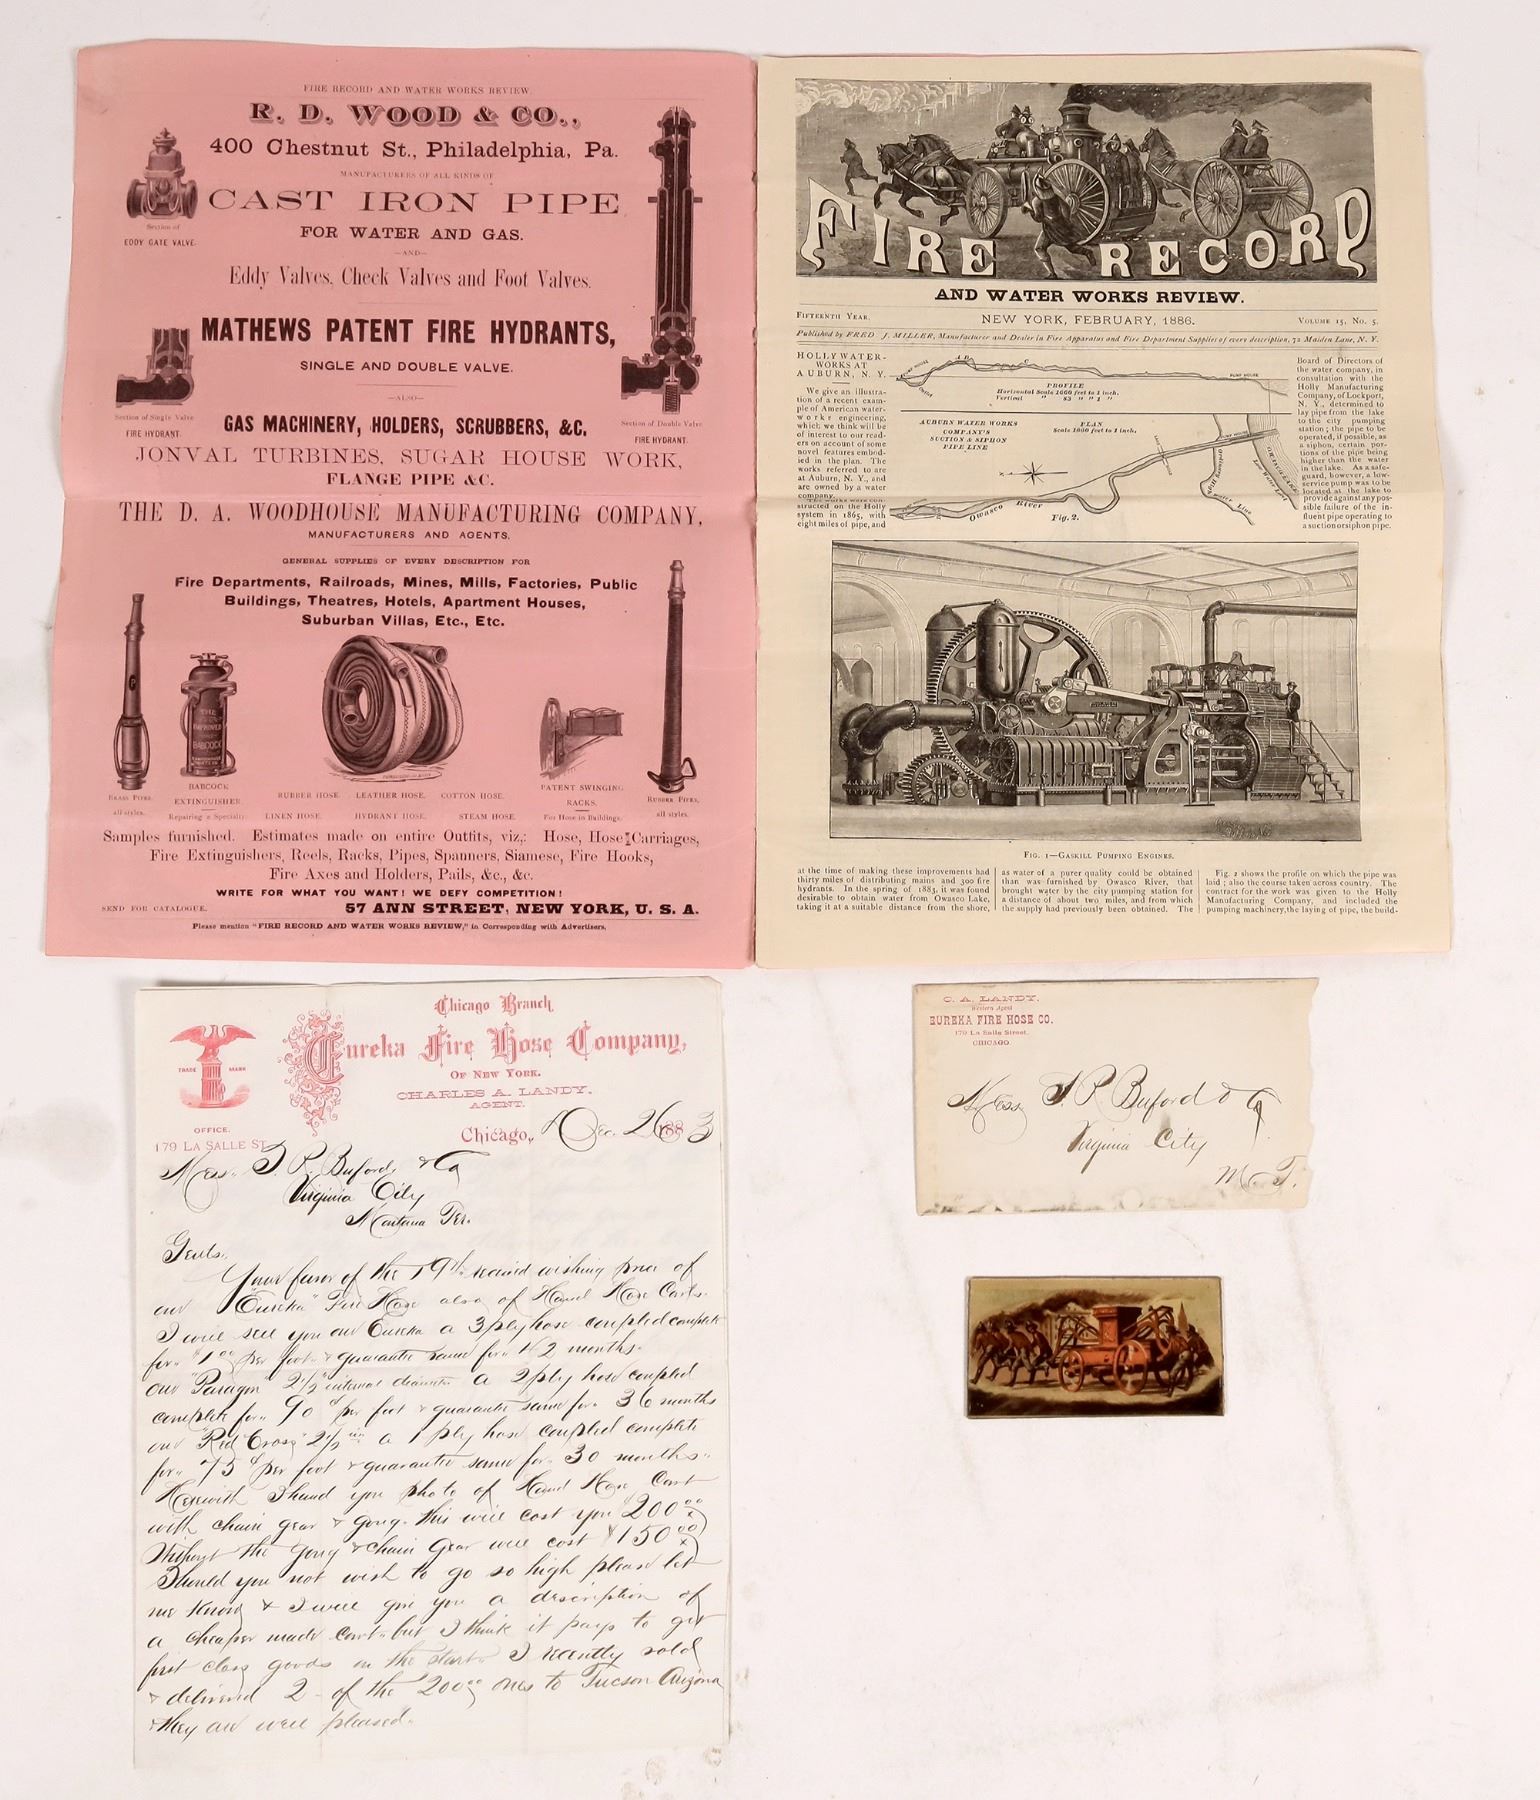 FIRE RECORD AND WATER WORKS REVIEW.
R. D. WOOD & CO.,
400 Chestnut St., Philadelphia, Pa.
MANUFACTURERS OF ALL KINDS OF
CAST IRON PIPE
FOR WATER AND GAS.
—AND—
Eddy Valves, Check Valves and Foot Valves.
Section of
EDDY GATE VALVE.
MATHEWS PATENT FIRE HYDRANTS,
SINGLE AND DOUBLE VALVE.
—ALSO—
Section of Single Valve
FIRE HYDRANT.
GAS MACHINERY, HOLDERS, SCRUBBERS, &C.
Section of Double Valve
FIRE HYDRANT.
JONVAL TURBINES, SUGAR HOUSE WORK,
FLANGE PIPE &C.
THE D. A. WOODHOUSE MANUFACTURING COMPANY,
MANUFACTURERS AND AGENTS.
GENERAL SUPPLIES OF EVERY DESCRIPTION FOR
Fire Departments, Railroads, Mines, Mills, Factories, Public
Buildings, Theatres, Hotels, Apartment Houses,
Suburban Villas, Etc., Etc.
THE
IMPROVED
BABCOCK
BRASS PIPES.
all styles.
BABCOCK
EXTINGUISHER.
Repairing a Specialty
RUBBER HOSE. LEATHER HOSE. COTTON HOSE.
LINEN HOSE. HYDRANT HOSE. STEAM HOSE.
PATENT SWINGING
RACKS.
For Hose in Buildings.
RUBBER PIPES,
all styles.
Samples furnished. Estimates made on entire Outfits, viz,: Hose, Hose Carriages,
Fire Extinguishers, Reels, Racks, Pipes, Spanners, Siamese, Fire Hooks,
Fire Axes and Holders, Pails, &c., &c.
WRITE FOR WHAT YOU WANT! WE DEFY COMPETITION!
SEND FOR CATALOGUE.
57 ANN STREET, NEW YORK, U. S. A.
Please mention "FIRE RECORD AND WATER WORKS REVIEW," in Corresponding with Advertisers.
FIRE RECORD
AND WATER WORKS REVIEW.
FIFTEENTH YEAR.
NEW YORK, FEBRUARY, 1886.
VOLUME 15, No. 5.
Published by FRED J. MILLER, Manufacturer and Dealer in Fire Apparatus and Fire Department Supplies of every description, 72 Maiden Lane, N. Y.
HOLLY WATER-
WORKS AT
AUBURN, N. Y.
We give an illustra-
tion of a recent exam-
ple of American water-
works engineering,
which we think will be
of interest to our read-
ers on account of some
novel features embod-
ied in the plan. The
works referred to are
at Auburn, N. Y., and
are owned by a water
company.
The works were con-
structed on the Holly
system in 1865, with
eight miles of pipe, and
PUMP HOUSE
PROFILE
Horizontal Scale 1600 feet to 1 inch.
Vertical " 83 " " 1 "
AUBURN WATER WORKS
COMPANY'S
SUCTION & SIPHON
PIPE LINE
PLAN
Scale 1600 feet to 1 inch.
Owasco River
Fig. 2.
Board of Directors of
the water company, in
consultation with the
Holly Manufacturing
Company, of Lockport,
N. Y., determined to
lay pipe from the lake
to the city pumping
station; the pipe to be
operated, if possible, as
a siphon, certain por-
tions of the pipe being
higher than the water
in the lake. As a safe-
guard, however, a low-
service pump was to be
located at the lake to
provide against any pos-
sible failure of the in-
fluent pipe operating to
a suction or siphon pipe.
FIG. 1—GASKILL PUMPING ENGINES.
at the time of making these improvements had
thirty miles of distributing mains and 300 fire
hydrants. In the spring of 1883, it was found
desirable to obtain water from Owasco Lake,
taking it at a suitable distance from the shore,
as water of a purer quality could be obtained
than was furnished by Owasco River, that
brought water by the city pumping station for
a distance of about two miles, and from which
the supply had previously been obtained. The
Fig. 2 shows the profile on which the pipe was
laid; also the course taken across country. The
contract for the work was given to the Holly
Manufacturing Company, and included the
pumping machinery, the laying of pipe, the build-
Chicago Branch
Eureka Fire Hose Company,
OF NEW YORK.
CHARLES A. LANDY,
AGENT.
TRADE MARK
OFFICE.
179 LA SALLE ST.
Chicago, Dec. 26 1883
Mess. S. R. Buford & Co
Virginia City
Montana Ter.
Gents.
Your favor of the 19th received wishing price of
our "Eureka" Fire Hose also of Hand Hose Carts.
I will sell you our Eureka a 3 ply hose coupled complete
for $1.00 per foot & guarantee same for 42 months.
our "Paragon" 2½" internal diameter a 2 ply hose coupled
complete for 90¢ per foot & guarantee same for 36 months
our "Red Cross" 2½ in a 1 ply hose coupled complete
for 75¢ per foot & guarantee same for 30 months.
Herewith I hand you photo of Hand Hose Cart
with chain gear & gong. this will cost you $200.00
Without the gong & chain gear will cost $150.00
Should you not wish to go so high please let
me know & I will give you a description of
a cheaper made cart. but I think it pays to get
first class goods on the start. I recently sold
& delivered 2 of the 200.00 ones to Tucson Arizona
& they are well pleased.
C. A. LANDY,
Western Agent
EUREKA FIRE HOSE CO.
179 La Salle Street,
CHICAGO
Mess S R Buford & Co
Virginia City
M. T.